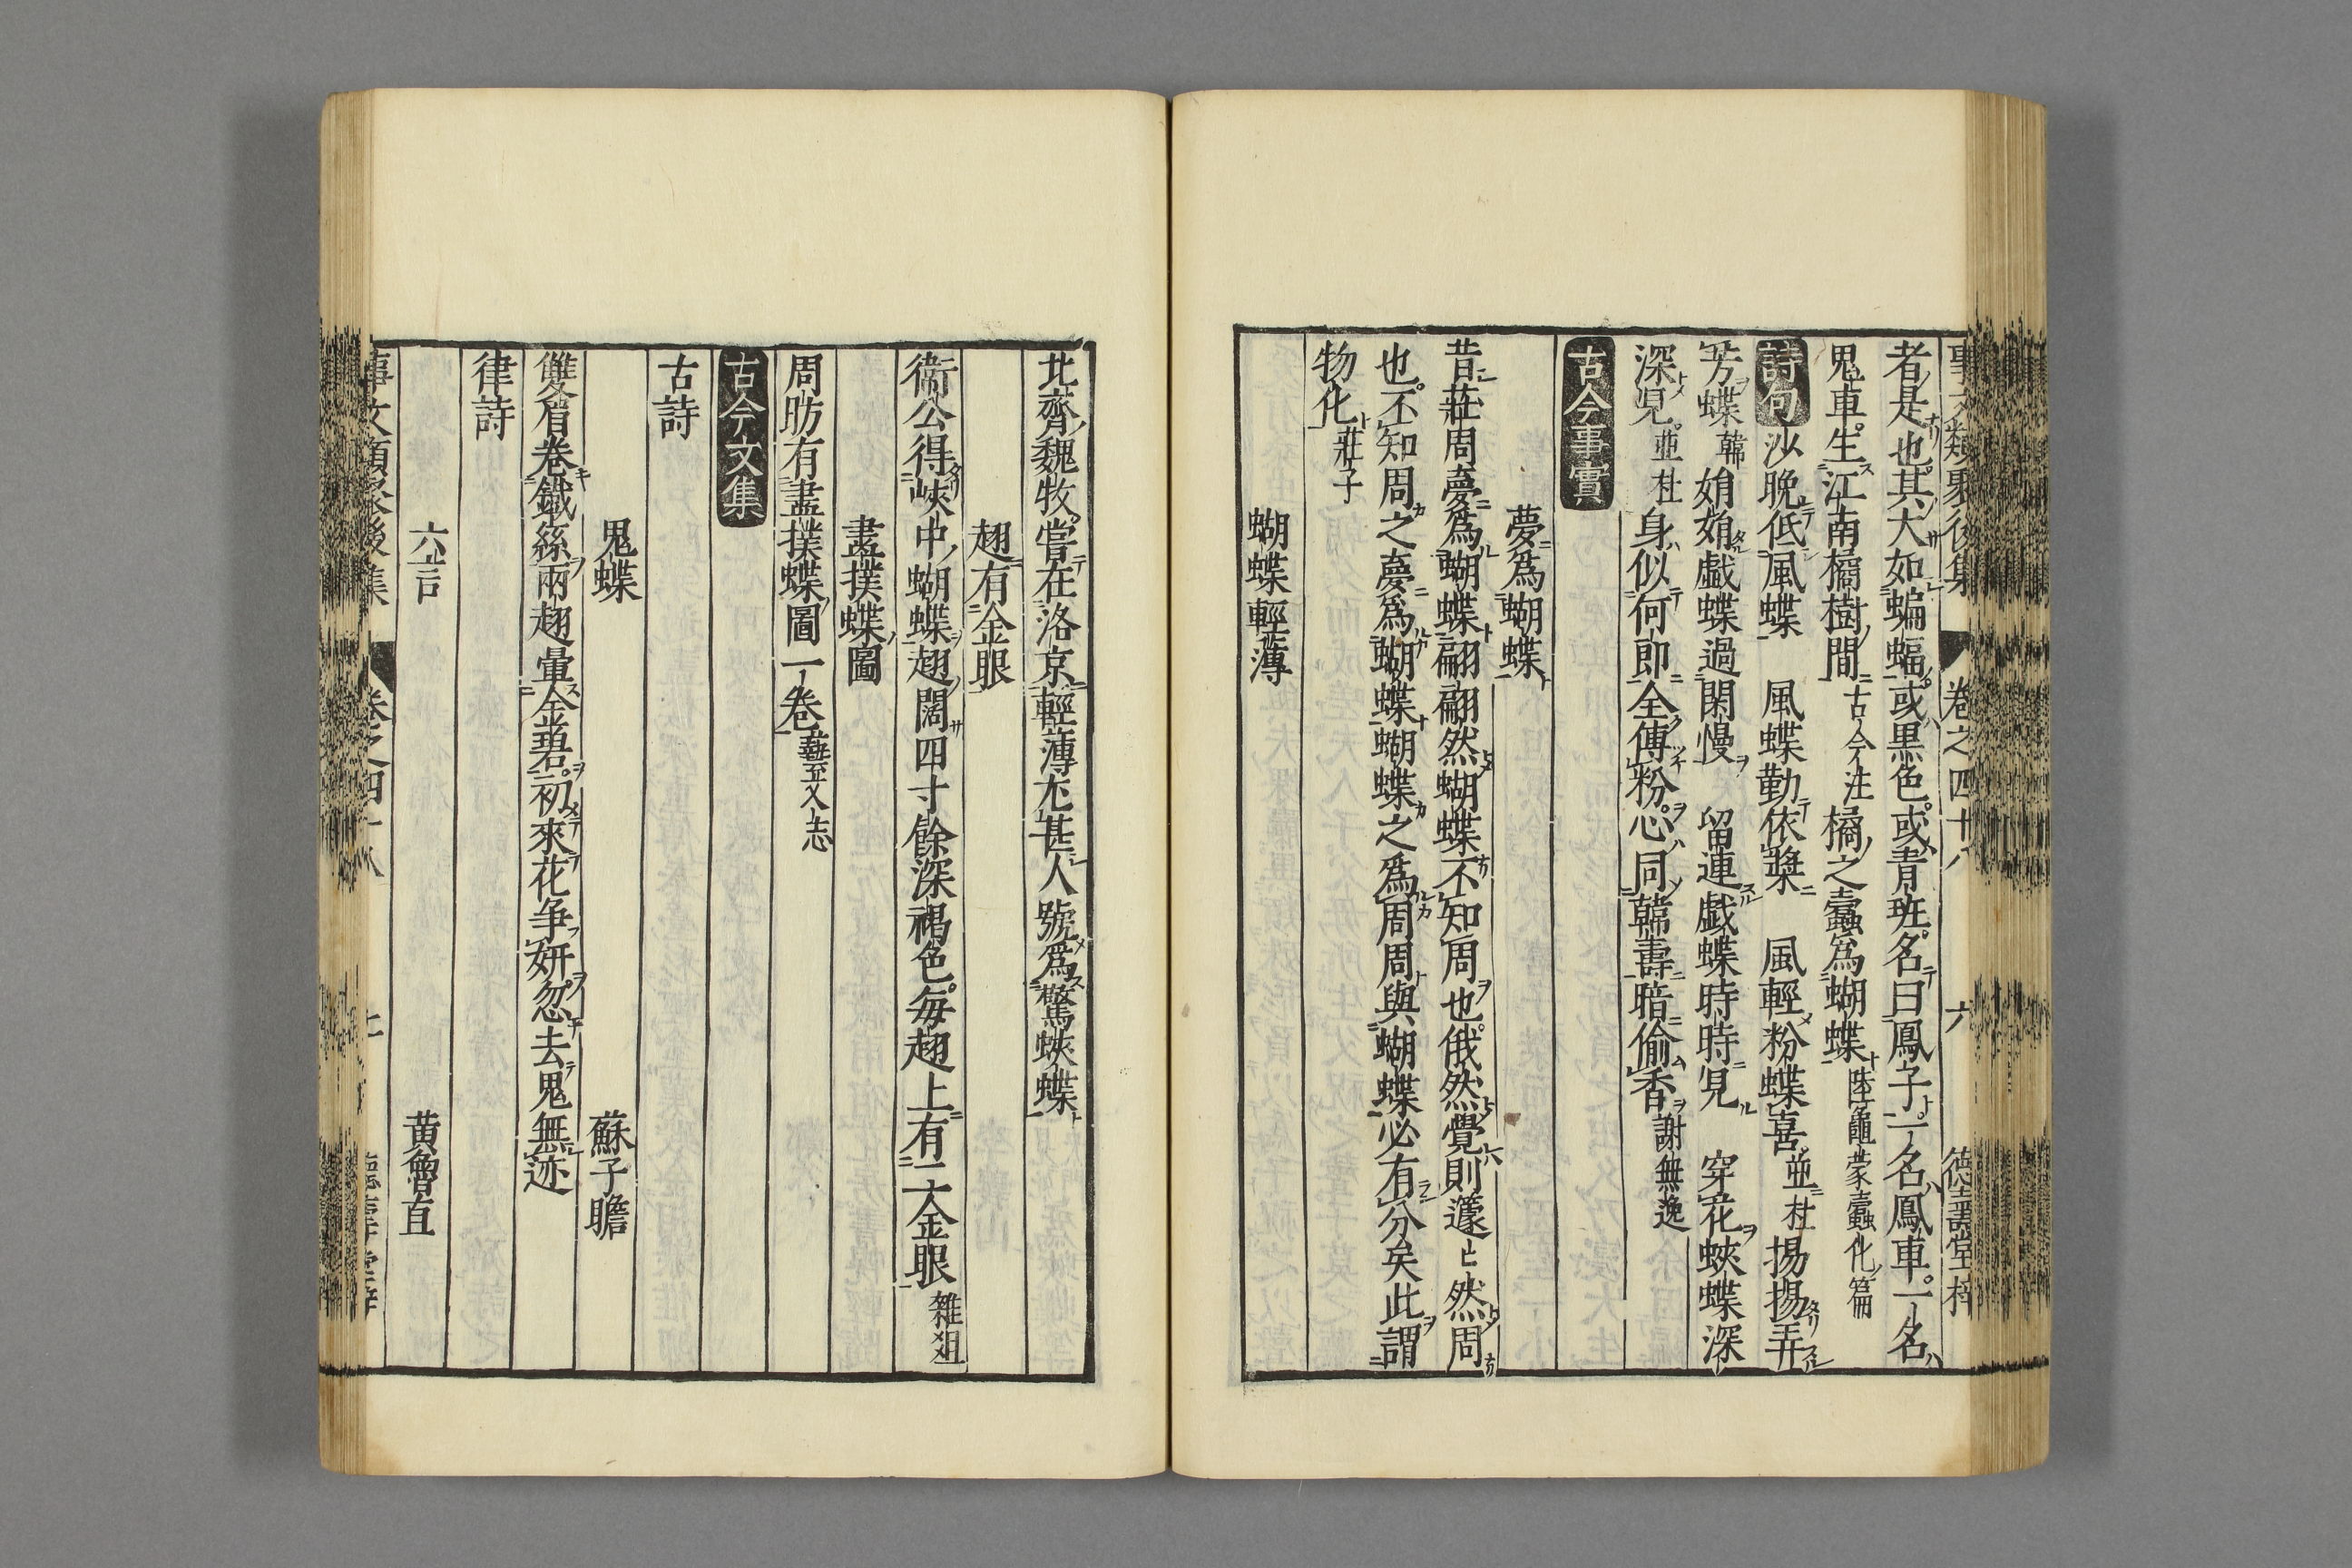 事文類聚後集 卷之四十八 六 德壽堂梓
者是也其大如蝙蝠或黒色或青班名曰鳳子一名鳳車一名
鬼車生江南橘樹間古今注橘之蠹爲蝴蝶陸龜蒙蠹化篇
詩句沙晩低風蝶 風蝶勤依槳 風輕粉蝶喜並杜揚揚弄
芳蝶韓娟娟戯蝶過閑慢 留連戯蝶時時見 穿花蛺蝶深
深見並杜身似何郎全傅粉心同韓壽暗偷香謝無逸
古今事實
夢爲蝴蝶
昔莊周夢爲蝴蝶翩翩然蝴蝶不知周也俄然覺則蘧〻然周
也不知周之夢爲蝴蝶蝴蝶之爲周周與蝴蝶必有分矣此謂
物化莊子
蝴蝶輕薄
北齊魏牧嘗在洛京輕薄尤甚人號爲驚蛺蝶
翅有金眼
衞公得峽中蝴蝶翅闊四寸餘深褐色每翅上有二金眼雜俎
畫撲蝶圖
周昉有畫撲蝶圖一卷藝文志
古今文集
古詩
鬼蝶 蘇子瞻
雙眉卷鐵絲兩翅暈金碧初來花争妍忽去鬼無迹
律詩
六言 黄魯直
事文類聚後集 卷之四十八 七 德壽堂梓